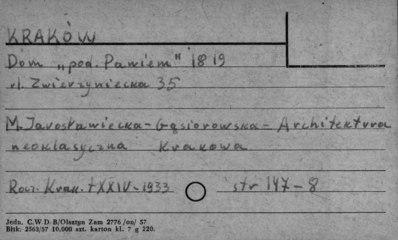 KRAKÓW
Dom "pod. Pawiem" 1819
ul. Zwierzyniecka 35
M. Jarosławiecka-Gąsiorowska - Architektura
neoklasyczna Krakowa
Rocz. Krak. t XXIV - 1933 str 147-8
Jedn. C.W.D-B/Olsztyn Zam 2776 /on/ 57.
Błtk. 2563/57 10.000 szt. karton kl. 7 g 220.